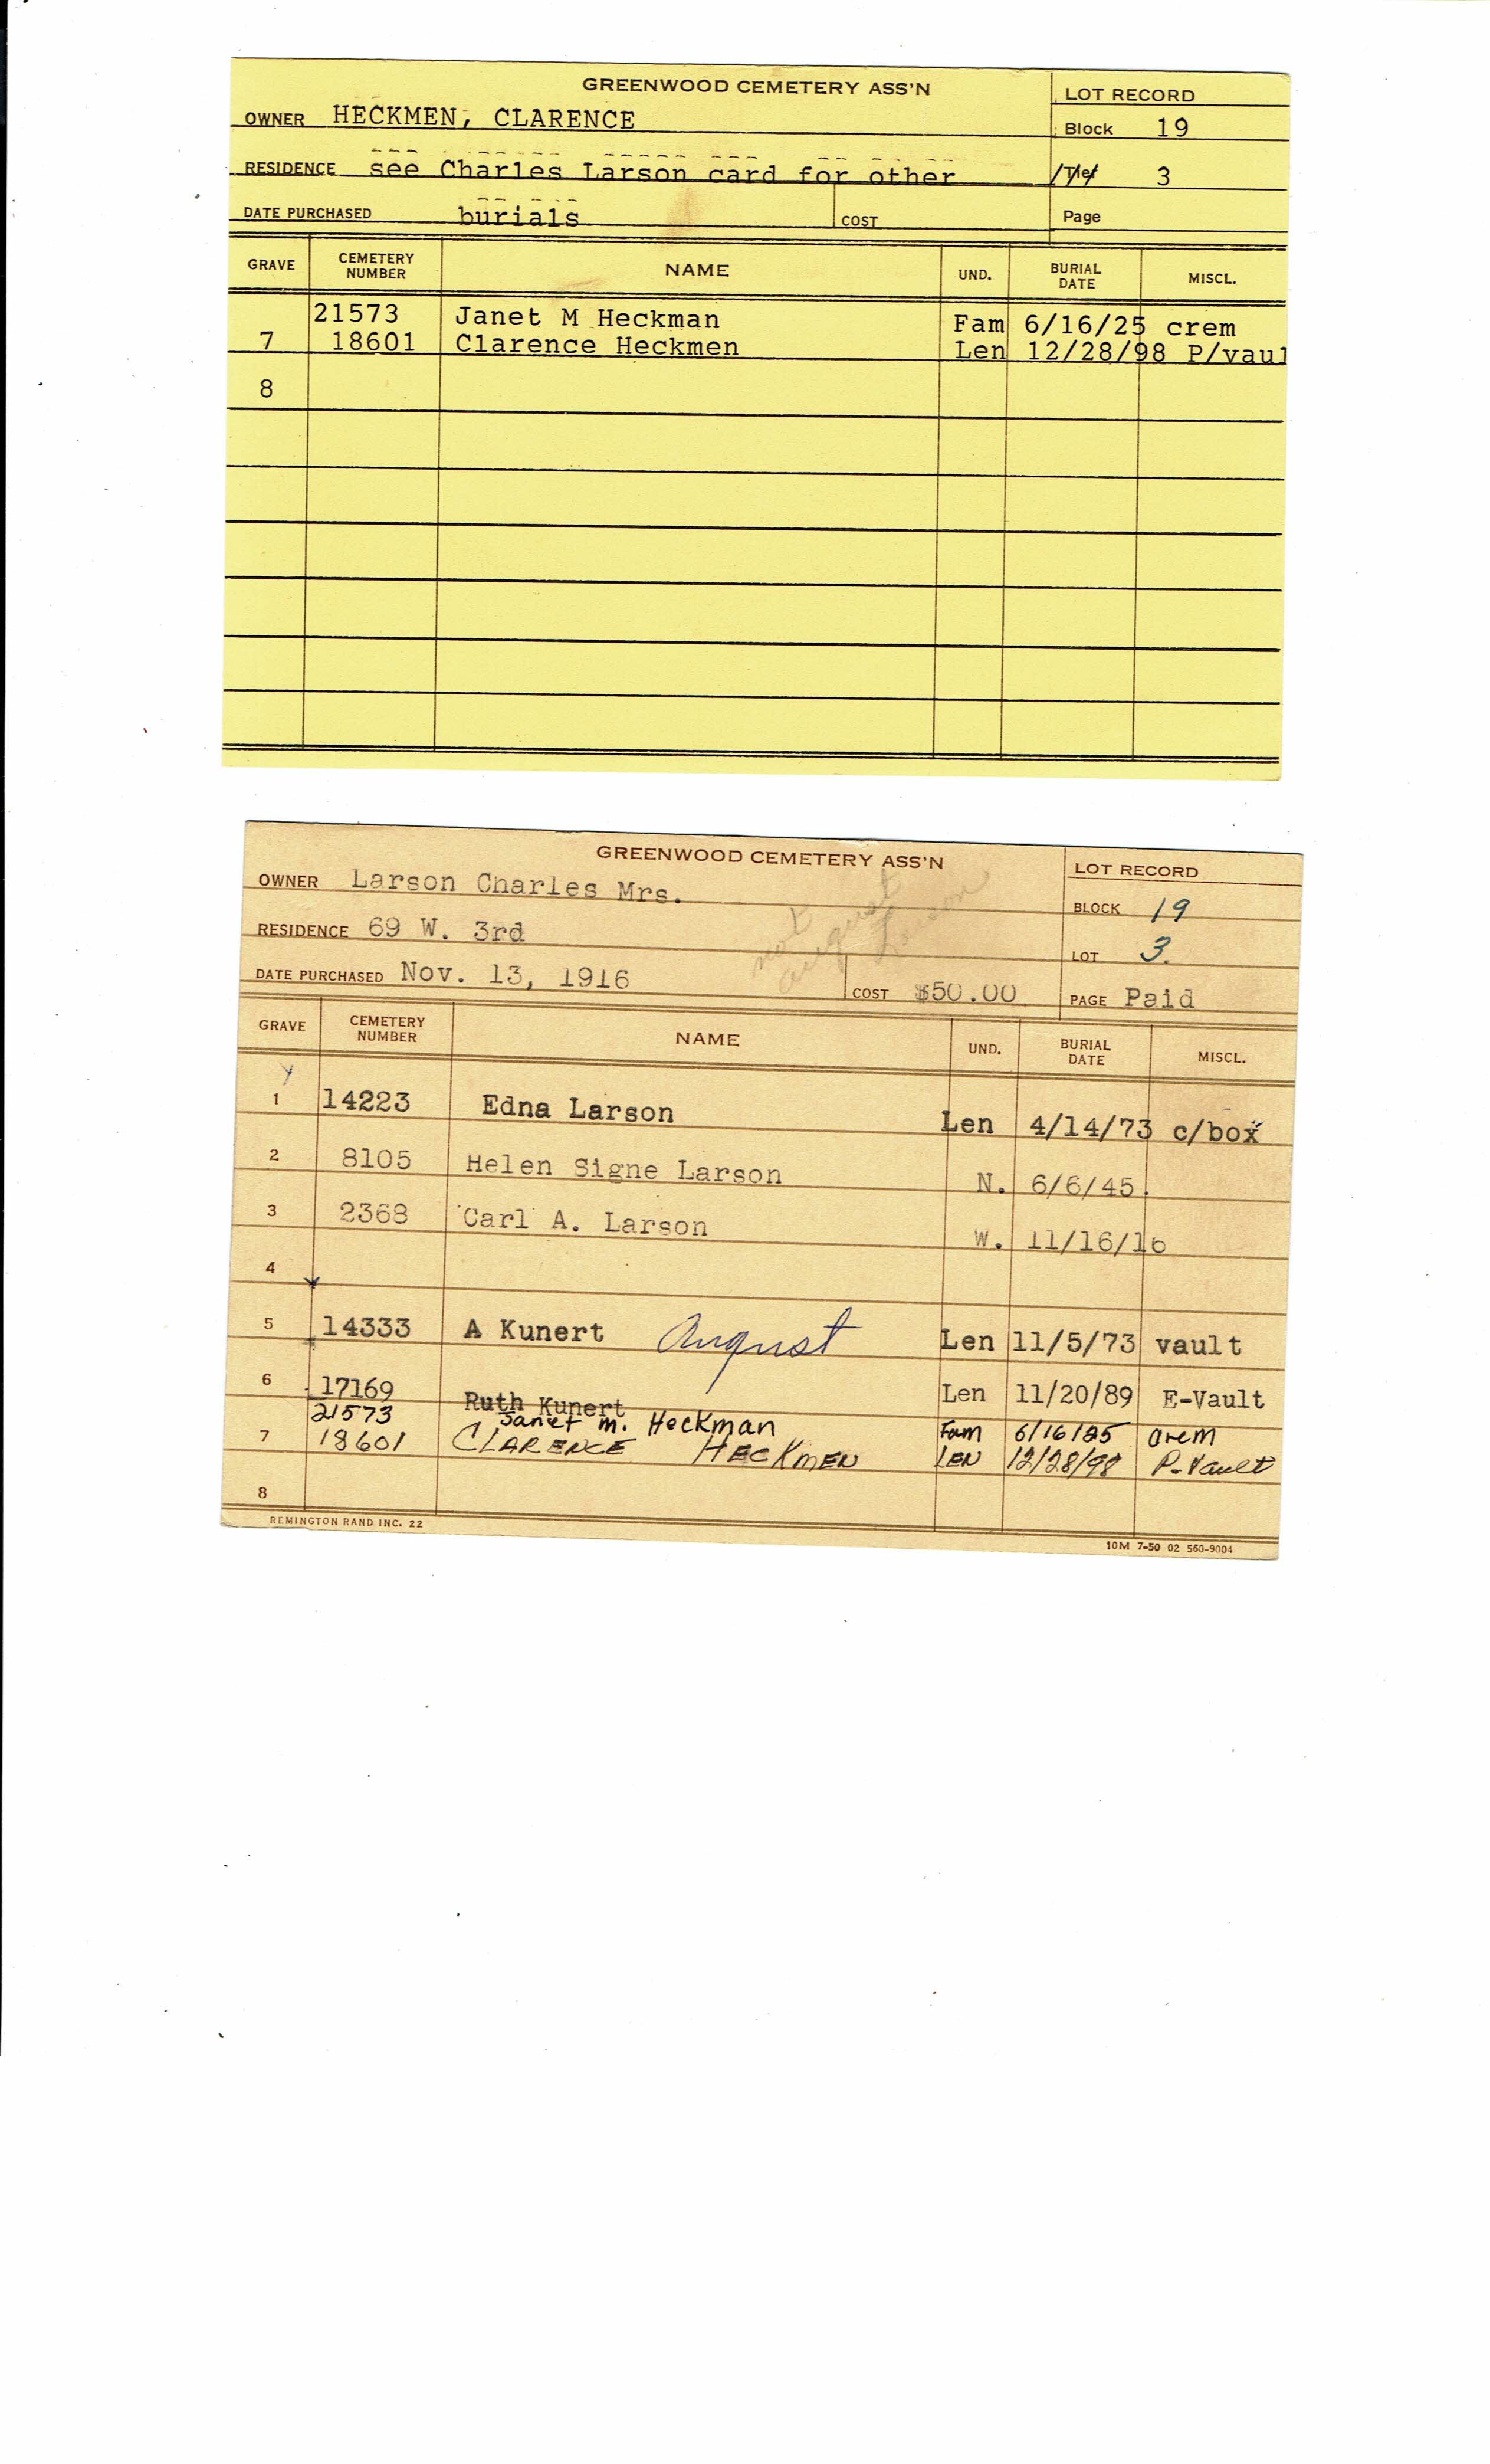 GREENWOOD CEMETERY ASS'N
LOT RECORD
OWNER HECKMEN, CLARENCE
Block 19
RESIDENCE see Charles Larson card for other
3
DATE PURCHASED burials COST
Page
GRAVE CEMETERY NUMBER NAME UND. BURIAL DATE MISCL.
21573 Janet M Heckman Fam 6/16/25 crem
7 18601 Clarence Heckmen Len 12/28/98 P/vaul
8
GREENWOOD CEMETERY ASS'N
LOT RECORD
OWNER Larson Charles Mrs.
not
august
Larson
BLOCK 19
RESIDENCE 69 W. 3rd
LOT 3.
DATE PURCHASED Nov. 13, 1916 COST $50.00 PAGE Paid
GRAVE CEMETERY NUMBER NAME UND. BURIAL DATE MISCL.
1 14223 Edna Larson Len 4/14/73 c/box
2 8105 Helen Signe Larson N. 6/6/45
3 2368 Carl A. Larson W. 11/16/16
4
5 14333 A Kunert August Len 11/5/73 vault
6 17169 Ruth Kunert Len 11/20/89 E-Vault
21573 Janet m. Heckman Fam 6/16/25 crem
7 18601 CLARENCE HECKMEN LEN 12/28/98 P-Vault
8
REMINGTON RAND INC. 22
10M 7-50 02 560-9004